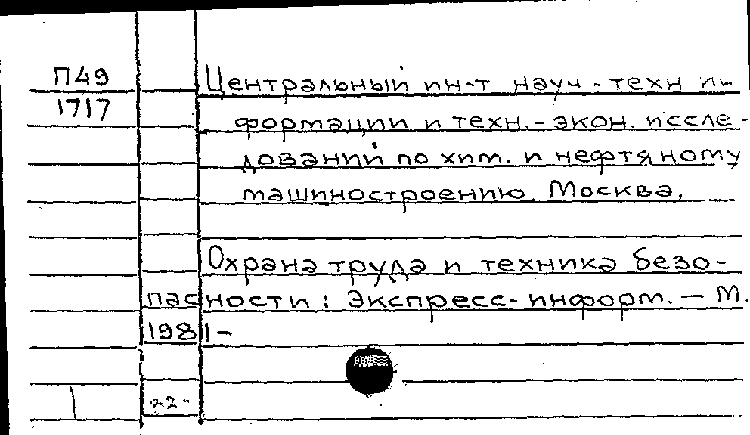 П49 Центральный ин-т науч.-техн и-
1717 формации и техн.-экон. иссле-
дований по хим. и нефтяному
машиностроению. Москва.
Охрана труда и техника безо-
пасности: Экспресс-информ. — М.
1981-
22-